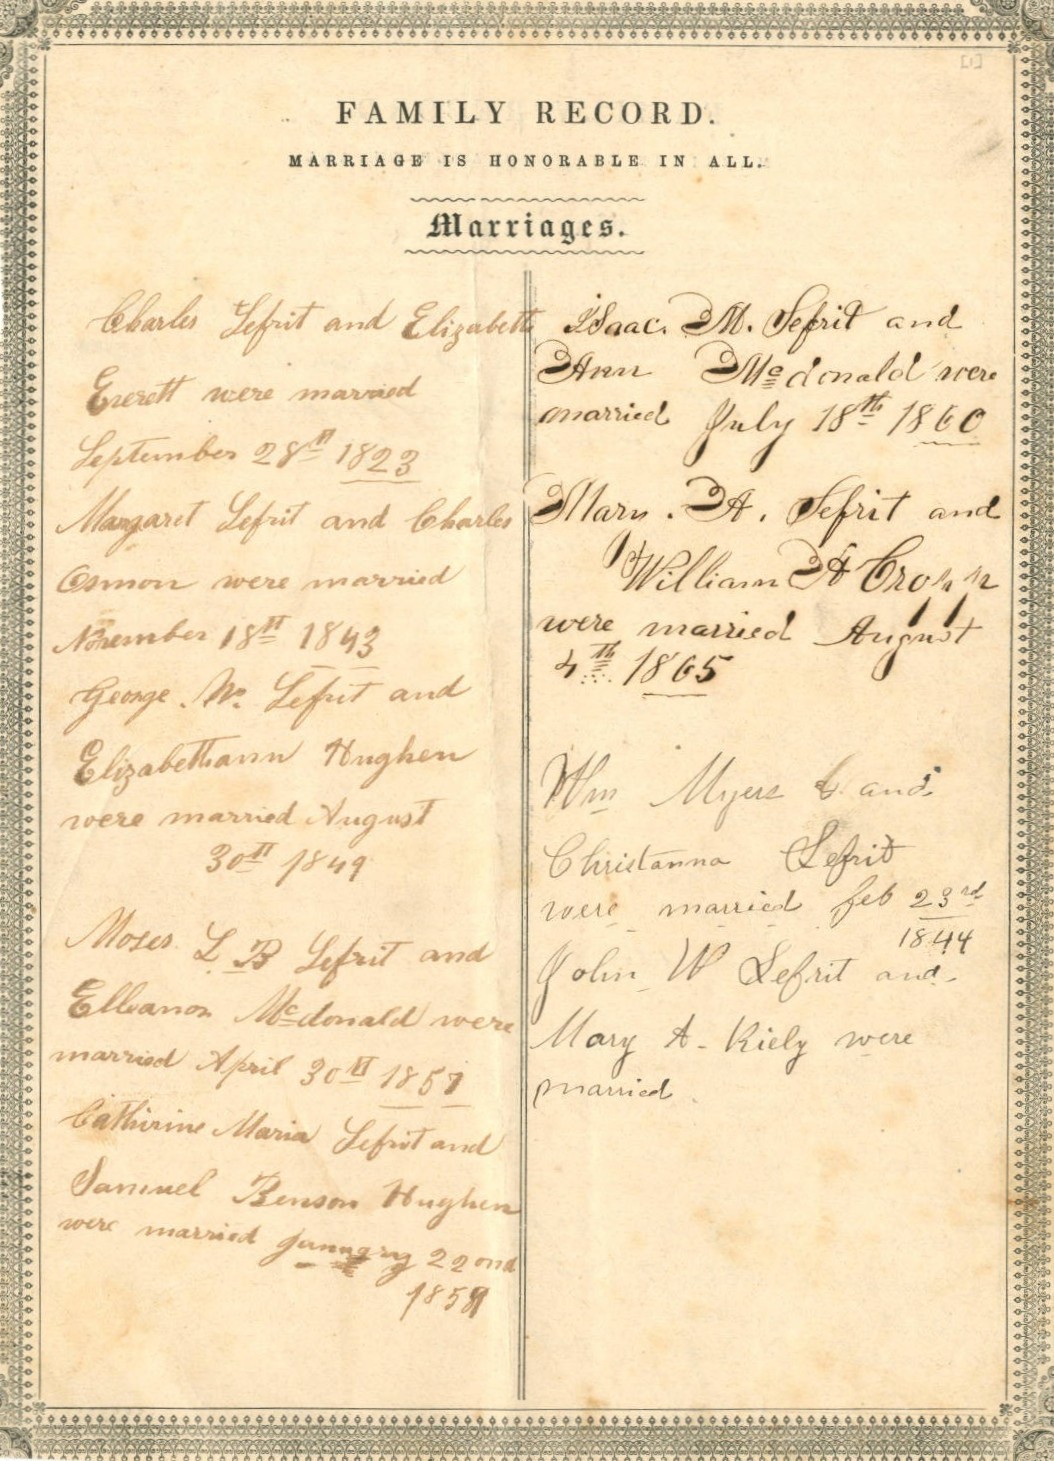 [1]
FAMILY RECORD.
MARRIAGE IS HONORABLE IN ALL.
Marriages.
Charles Sefrit and Elizabeth
Everett were married
September 28th 1823
Margaret Sefrit and Charles
Osmon were married
November 18th 1843
George . W. Sefrit and
Elizabethann Hughen
were married August
30th 1849
Moses L B Sefrit and
Elleanor Mcdonald were
married April 30th 1857
Catherine Maria Sefrit and
Samuel Benson Hughen
were married January 22ond
Isaac. M. Sefrit and
Ann Mcdonald were
married July 18th 1860
Mary . A. Sefrit and
William A
were married August
4th 1865
Wm Myers and
Christanna Sefrit
were married feb 23rd
1844
John W Sefrit and
Mary A - Kiely were
married